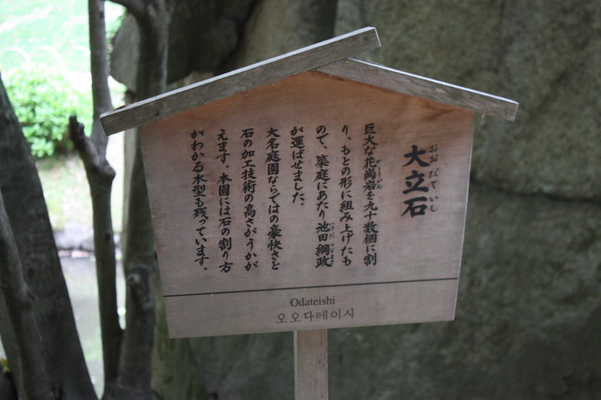 おおだていし
大立石
巨大な花崗岩を九十数個に割
り、もとの形に組み上げたも
ので、築庭にあたり池田綱政
が運ばせました。
大名庭園ならではの豪快さと
石の加工技術の高さがうかが
えます。本園には石の割り方
がわかる木型も残っています。
Odateishi
오오다테이시